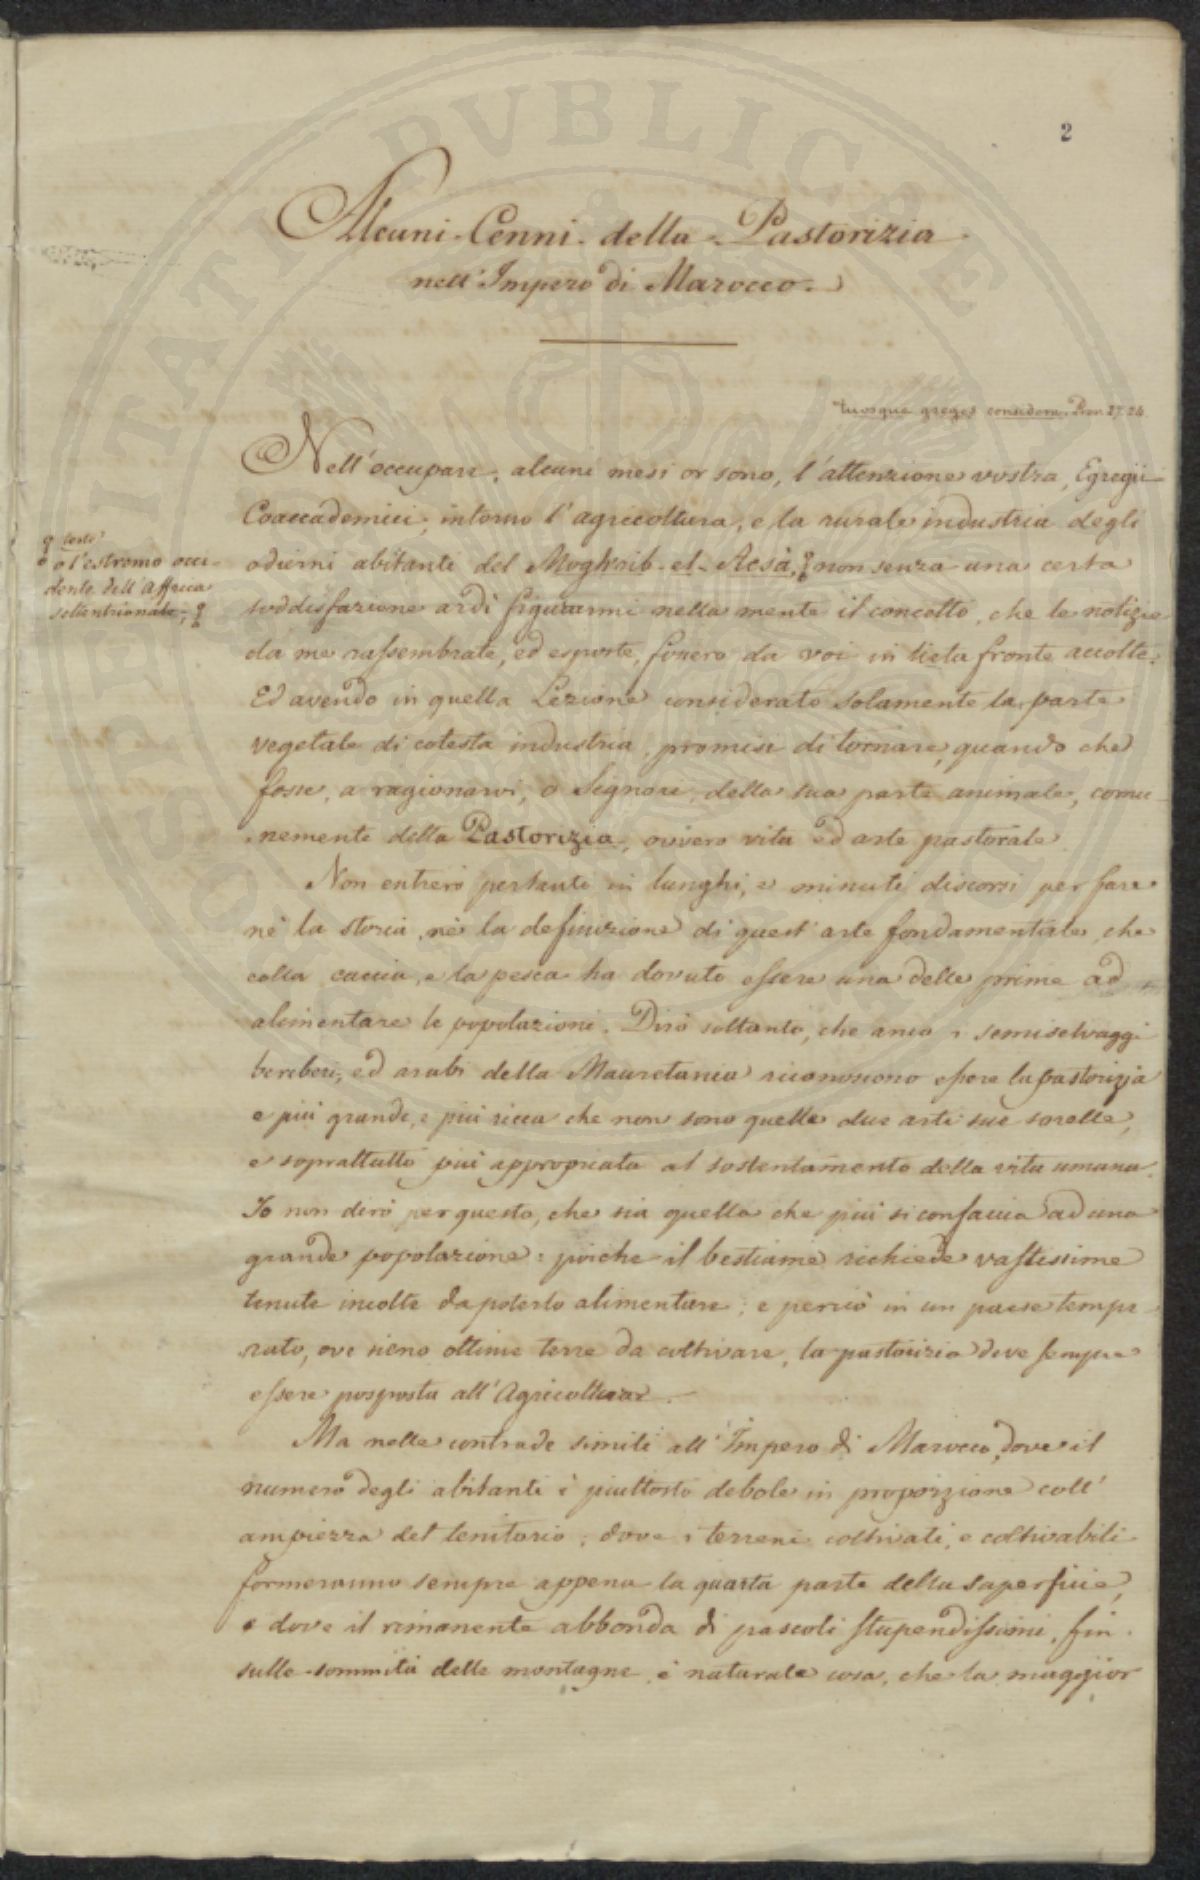 2
Alcuni Cenni della Pastorizia
nell'Impero di Marocco.
tuosque greges considera. Prov. 27. 24.
Nell'occupare, alcuni mesi or sono, l'attenzione vostra, Egregii
Coaccademici, intorno l'agricoltura, e la rurale industria degli
odierni abitanti del Moghrib-el-Acsà, non senza una certa
testo
o l'estremo occi-
dente dell'Affrica
settentrionale,
soddisfazione ardì figurarmi nella mente il concetto, che le notizie
da me rassembrate, ed esposte, fossero da voi in lieta fronte accolte.
Ed avendo in quella Lezione considerato solamente la parte
vegetale di cotesta industria, promisi di tornare, quando che
fosse, a ragionarvi, o Signori, della sua parte animale, comu-
nemente detta Pastorizia, ovvero vita ed arte pastorale.
Non entrerò pertanto in lunghi, e minuti discorsi per fare
nè la storia, nè la definizione di quest'arte fondamentale, che
colla caccia, e la pesca ha dovuto essere una delle prime ad
alimentare le popolazioni. Dirò soltanto, che anco i semiselvaggi
bereberi, ed arabi della Mauretania riconoscono essere la pastorizia
e più grande, e più ricca che non sono quelle due arti sue sorelle,
e soprattutto più appropriata al sostentamento della vita umana.
Io non dirò per questo, che sia quella che più si confaccia ad una
grande popolazione: poichè il bestiame richiede vastissime
tenute incolte da poterlo alimentare; e perciò in un paese tempe-
rato, ove sieno ottime terre da coltivare, la pastorizia deve sempre
essere posposta all'Agricoltura.
Ma nelle contrade simili all'Impero di Marocco, dove il
numero degli abitanti è piuttosto debole in proporzione coll'
ampiezza del territorio; dove i terreni coltivati, e coltivabili
formeranno sempre appena la quarta parte della superficie,
e dove il rimanente abbonda di pascoli stupendissimi, fin
sulle sommità delle montagne, è naturale cosa, che la maggior